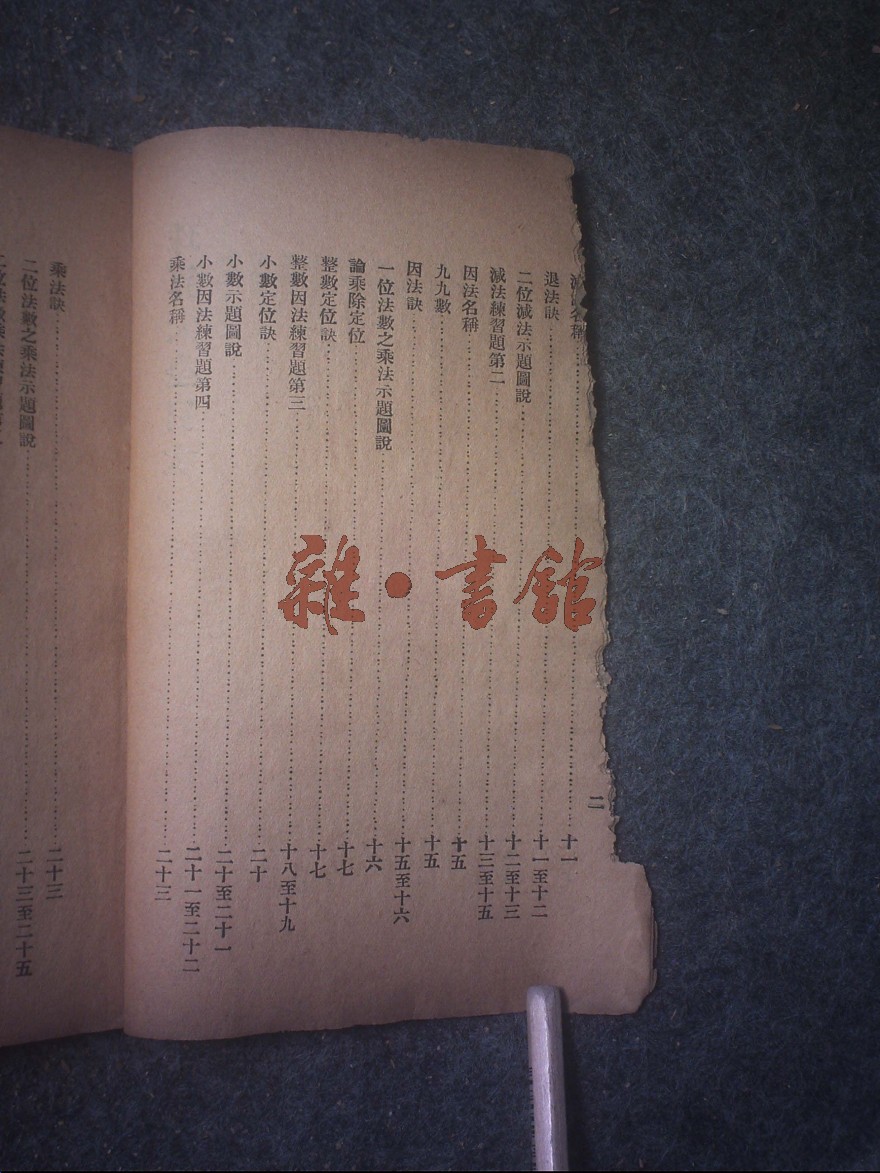 減法名稱 十一
退法訣 十一至十二
二位減法示題圖說 十二至十三
減法練習題第二 十三至十五
因法名稱 十五
九九數 十五
因法訣 十五至十六
一位法數之乘法示題圖說 十六
論乘除定位 十七
整數定位訣 十七
整數因法練習題第三 十八至十九
小數定位訣 二十
小數示題圖說 二十至二十一
小數因法練習題第四 二十一至二十二
乘法名稱 二十三
二
乘法訣 二十三
二位法數之乘法示題圖說 二十三至二十五
雜·書館